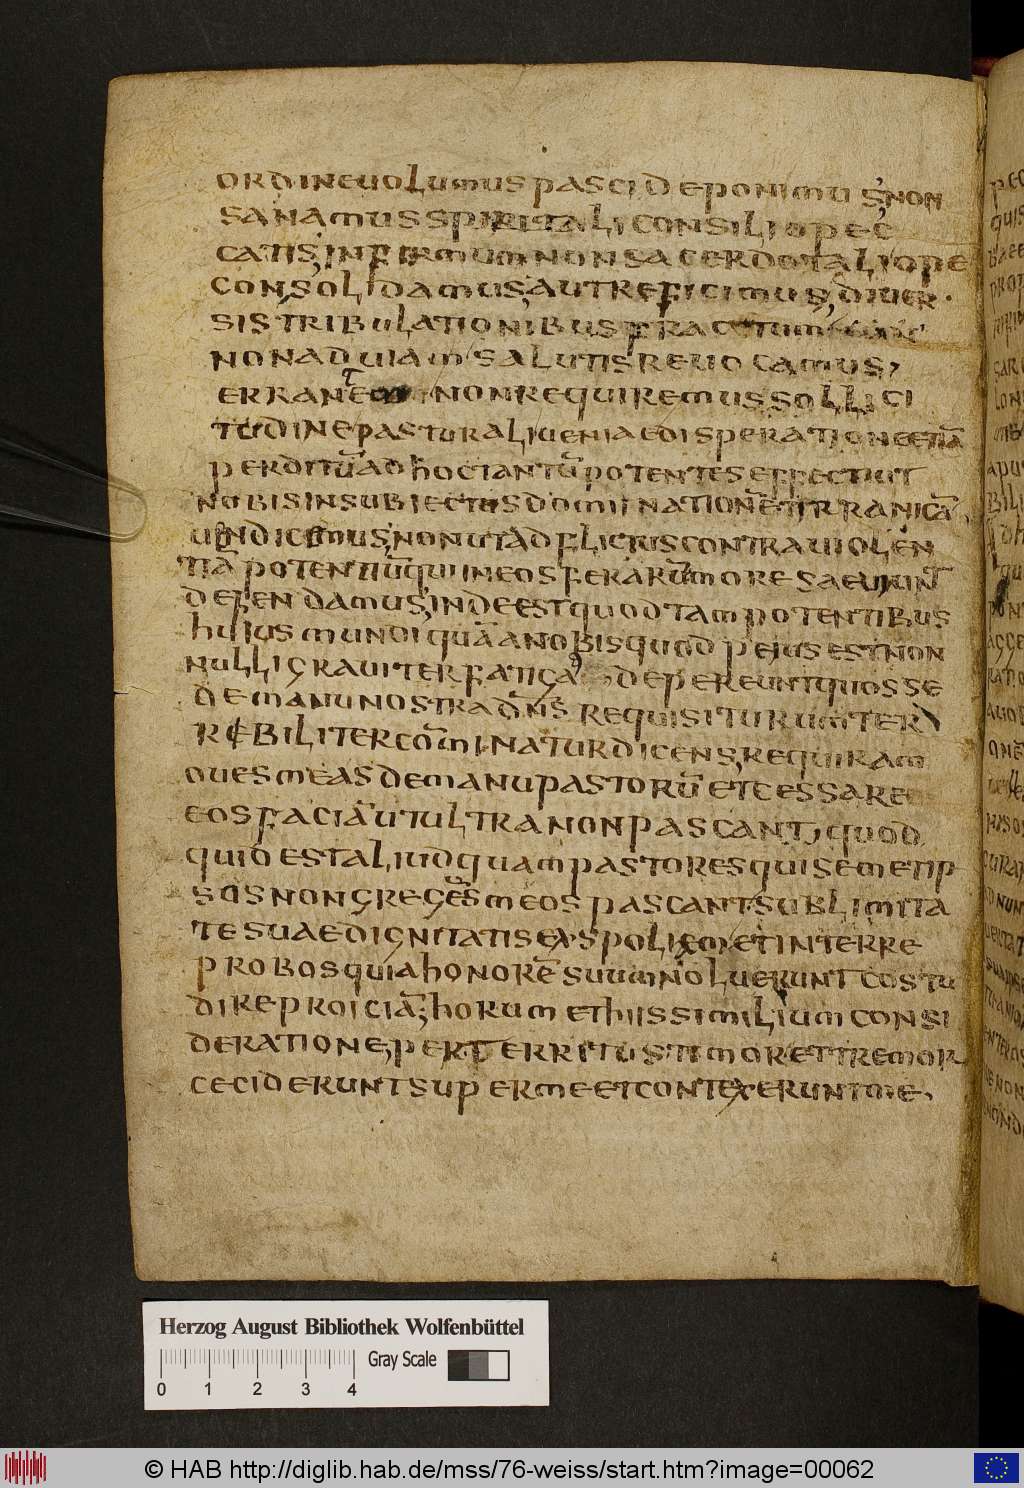 ORDINEUOLUMUSPASCIDEPONIMUS,NON
SANAMUSSPIRITALICONSILIOPEC
CATIS,INFIRMUMNONSACERDOTALIOPE
CONSOLIDAMUS,AUTREFICIMUS,DIUER
SISTRIBULATIONIBUSFRACTUM
NONADUIAMSALUTISREUOCAMUS,
NONREQUIREMUSSOLLICI
TUDINEPASTURALIUENIAEDISPERATIONEETIĀ
PERDITŪADHOCTANTŪPOTENTESEFFECTIUT
NOBISINSUBIECTOSDOMINATIONĒTIRRANICĀ
UINDICEMUS,NONUTADFLICTUSCONTRAUIOLEN
TIĀPOTENTIŪQUIINEOSFERARŪMORESAEUIUNT
DEFENDAMUS,INDEESTQUODTAMPOTENTIBUS
HUIUSMUNDIQUĀANOBISQUODPEIUSESTNON
NULLIGRAUITERFATIGA DEPEREUNTQUOSSE
DEMANUNOSTRADN̄SREQUISITURUMTER
RIBILITERCOMINATURDICENS,REQUIRAM
OUESMEASDEMANUPASTORŪETCESSARE
EOSFACIĀUTULTRANONPASCANT,QUOD
QUIDESTALIUDQUAMPASTORESQUISEMETIP
SOSNONGREGESMEOSPASCANTSUBLIMITA
TESUAEDIGNITATISEXSPOLIEMETINTERRE
PROBOSQUIAHONORĒSUUMNOLUERUNTCOSTU
DIREPROICIĀ;HORUMETHIISSIMILIUMCONSI
DERATIONE,PERTERRITUSTIMORETTREMOR
CECIDERUNTSUPERMEETCONTEXERUNTME,
Herzog August Bibliothek Wolfenbüttel
Gray Scale
0 1 2 3 4
© HAB http://diglib.hab.de/mss/76-weiss/start.htm?image=00062